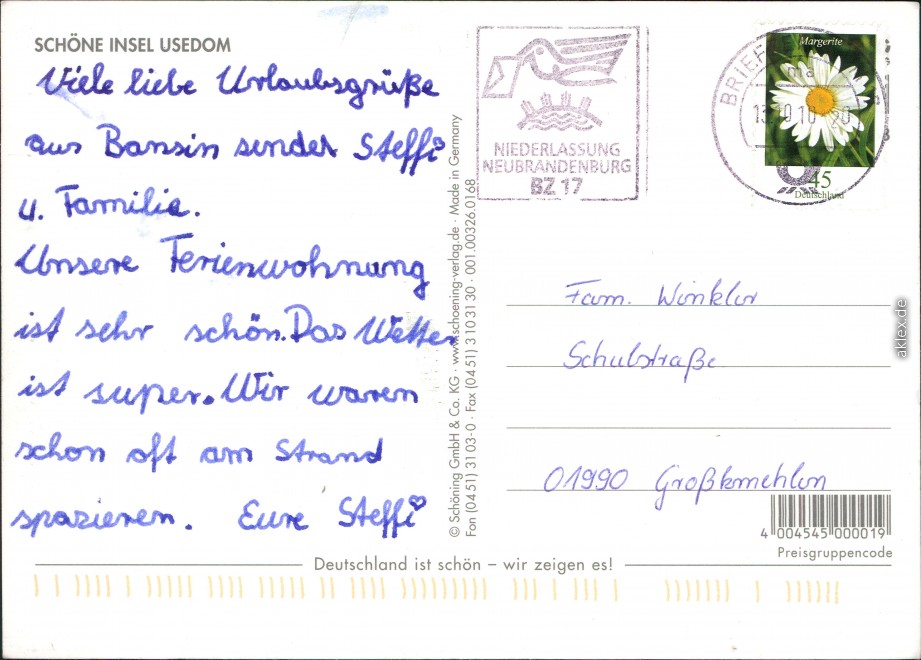 SCHÖNE INSEL USEDOM
Viele liebe Urlaubsgrüße
aus Bansin sendet Steffi
u. Familie.
Unsere Ferienwohnung
ist sehr schön. Das Wetter
ist super. Wir waren
schon oft am Strand
spazieren. Eure Steffi
© Schöning GmbH & Co. KG · www.schoening-verlag.de · Made in Germany
Fon (04 51) 31 03-0 · Fax (04 51) 3 10 31 30 · 001.00326.01 68
NIEDERLASSUNG
NEUBRANDENBURG
BZ 17
Margerite
BRIEF
13.10.10
45
Deutschland
Fam. Winkler
Schulstraße
01990 Großkmehlen
4 004545 000019
Preisgruppencode
Deutschland ist schön – wir zeigen es!
aklex.de